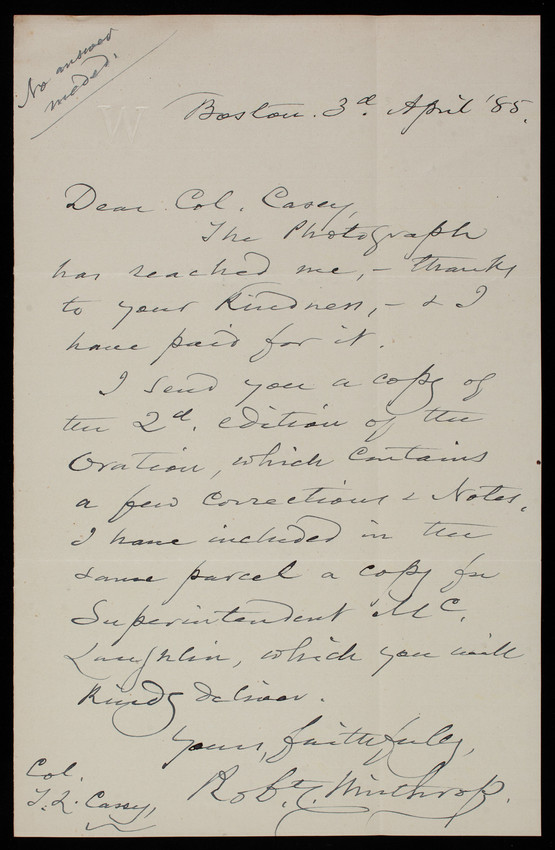 No answer
needed.
W
Boston. 3d. April '85.
Dear Col. Casey,
The Photograph
has reached me, - thanks
to your kindness, - & I
have paid for it.
I send you a copy of
the 2d. edition of the
Oration, which contains
a few corrections & Notes.
I have included in the
same parcel a copy for
Superintendent Mc.
Laughlin, which you will
kindly deliver.
Yours, faithfully,
Robt. C. Winthrop.
Col.
T. L. Casey,